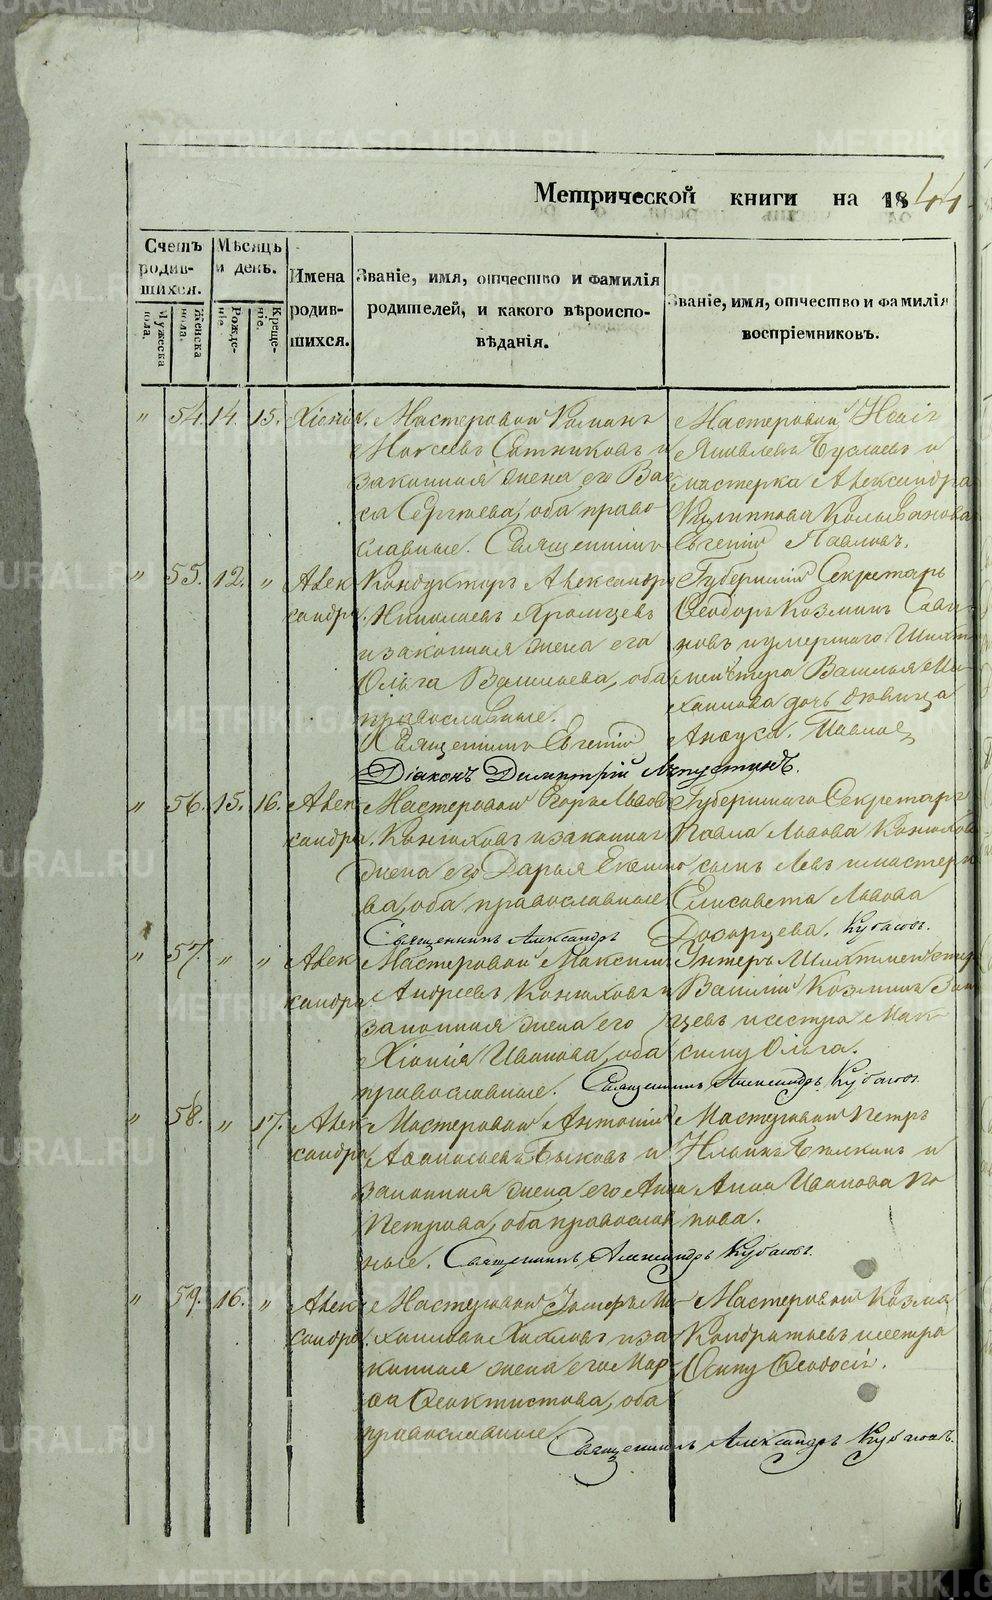 METRIKI.GASO-URAL.RU
Метрической книги на 1844
Счетъ родив-шихся.
Мѣсяцъ и день.
Имена родив-шихся.
Званіе, имя, отчество и фамилія родителей, и какого вѣроиспо-вѣданія.
Званіе, имя, отчество и фамилія воспріемниковъ.
Мужеска пола.
Женска пола.
Рожде-ніе.
Креще-ніе.
" 54. 14. 15. Хіонія. Мастеровой Романъ
Моисеевъ Сотниковъ и
законная жена его Ва-
са Сергѣева, оба право-
славные. Священникъ Евгеній Павловъ.
Мастеровой
Яковлевъ и
мастерка Александра
Филиппова Колыванова
" 55. 12. " Алек-
сандра.
Кондукторъ Александръ
Николаевъ
и законная жена его
Ольга Васильева, оба
православные.
Священникъ Евгеній Павловъ
Діаконъ Димитрій Лапустинъ.
Губернскій Секретарь
Ѳеодоръ Козминъ Сави-
новъ и умершаго Шихт-
мейстера Василья Ми-
хаилова дочь дѣвица
Анѳуса.
" 56. 15. 16. Алек-
сандра.
Мастеровой Егоръ Львовъ
Конюховъ и законная
жена его Дарья Екимо-
ва, оба православные
Священникъ Александръ Кубасовъ.
Губернскаго Секретаря
Павла Львова Конюхова
сынъ Левъ и мастерка
Елисовета Львова
Дозорцева.
" 57. " " Алек-
сандра.
Мастеровой Максимъ
Андреевъ Конюховъ и
законная жена его
Хіонія Иванова, оба
православные. Священникъ Александръ Кубасовъ.
Унтеръ Шихтмейстеръ
Василій Козминъ
и сестра Мак-
симу Ольга.
" 58. " 17. Алек-
сандра.
Мастеровой Антоній
Аѳанасьевъ Быковъ и
законная жена его Анна
Петрова, оба православ-
ные. Священникъ Александръ Кубасовъ.
Мастеровой Петръ
Ильинъ и
Анна Иванова По-
пова.
" 59. 16. " Алек-
сандра.
Мастеровой Іосифъ Ми-
хаиловъ Хохловъ и за-
конная жена его Мар-
ѳа Ѳеоктистова, оба
православные
Священникъ Александръ Кубасовъ.
Мастеровой Козма
Кондратьевъ и сестра
Осипу Ѳеодосія.